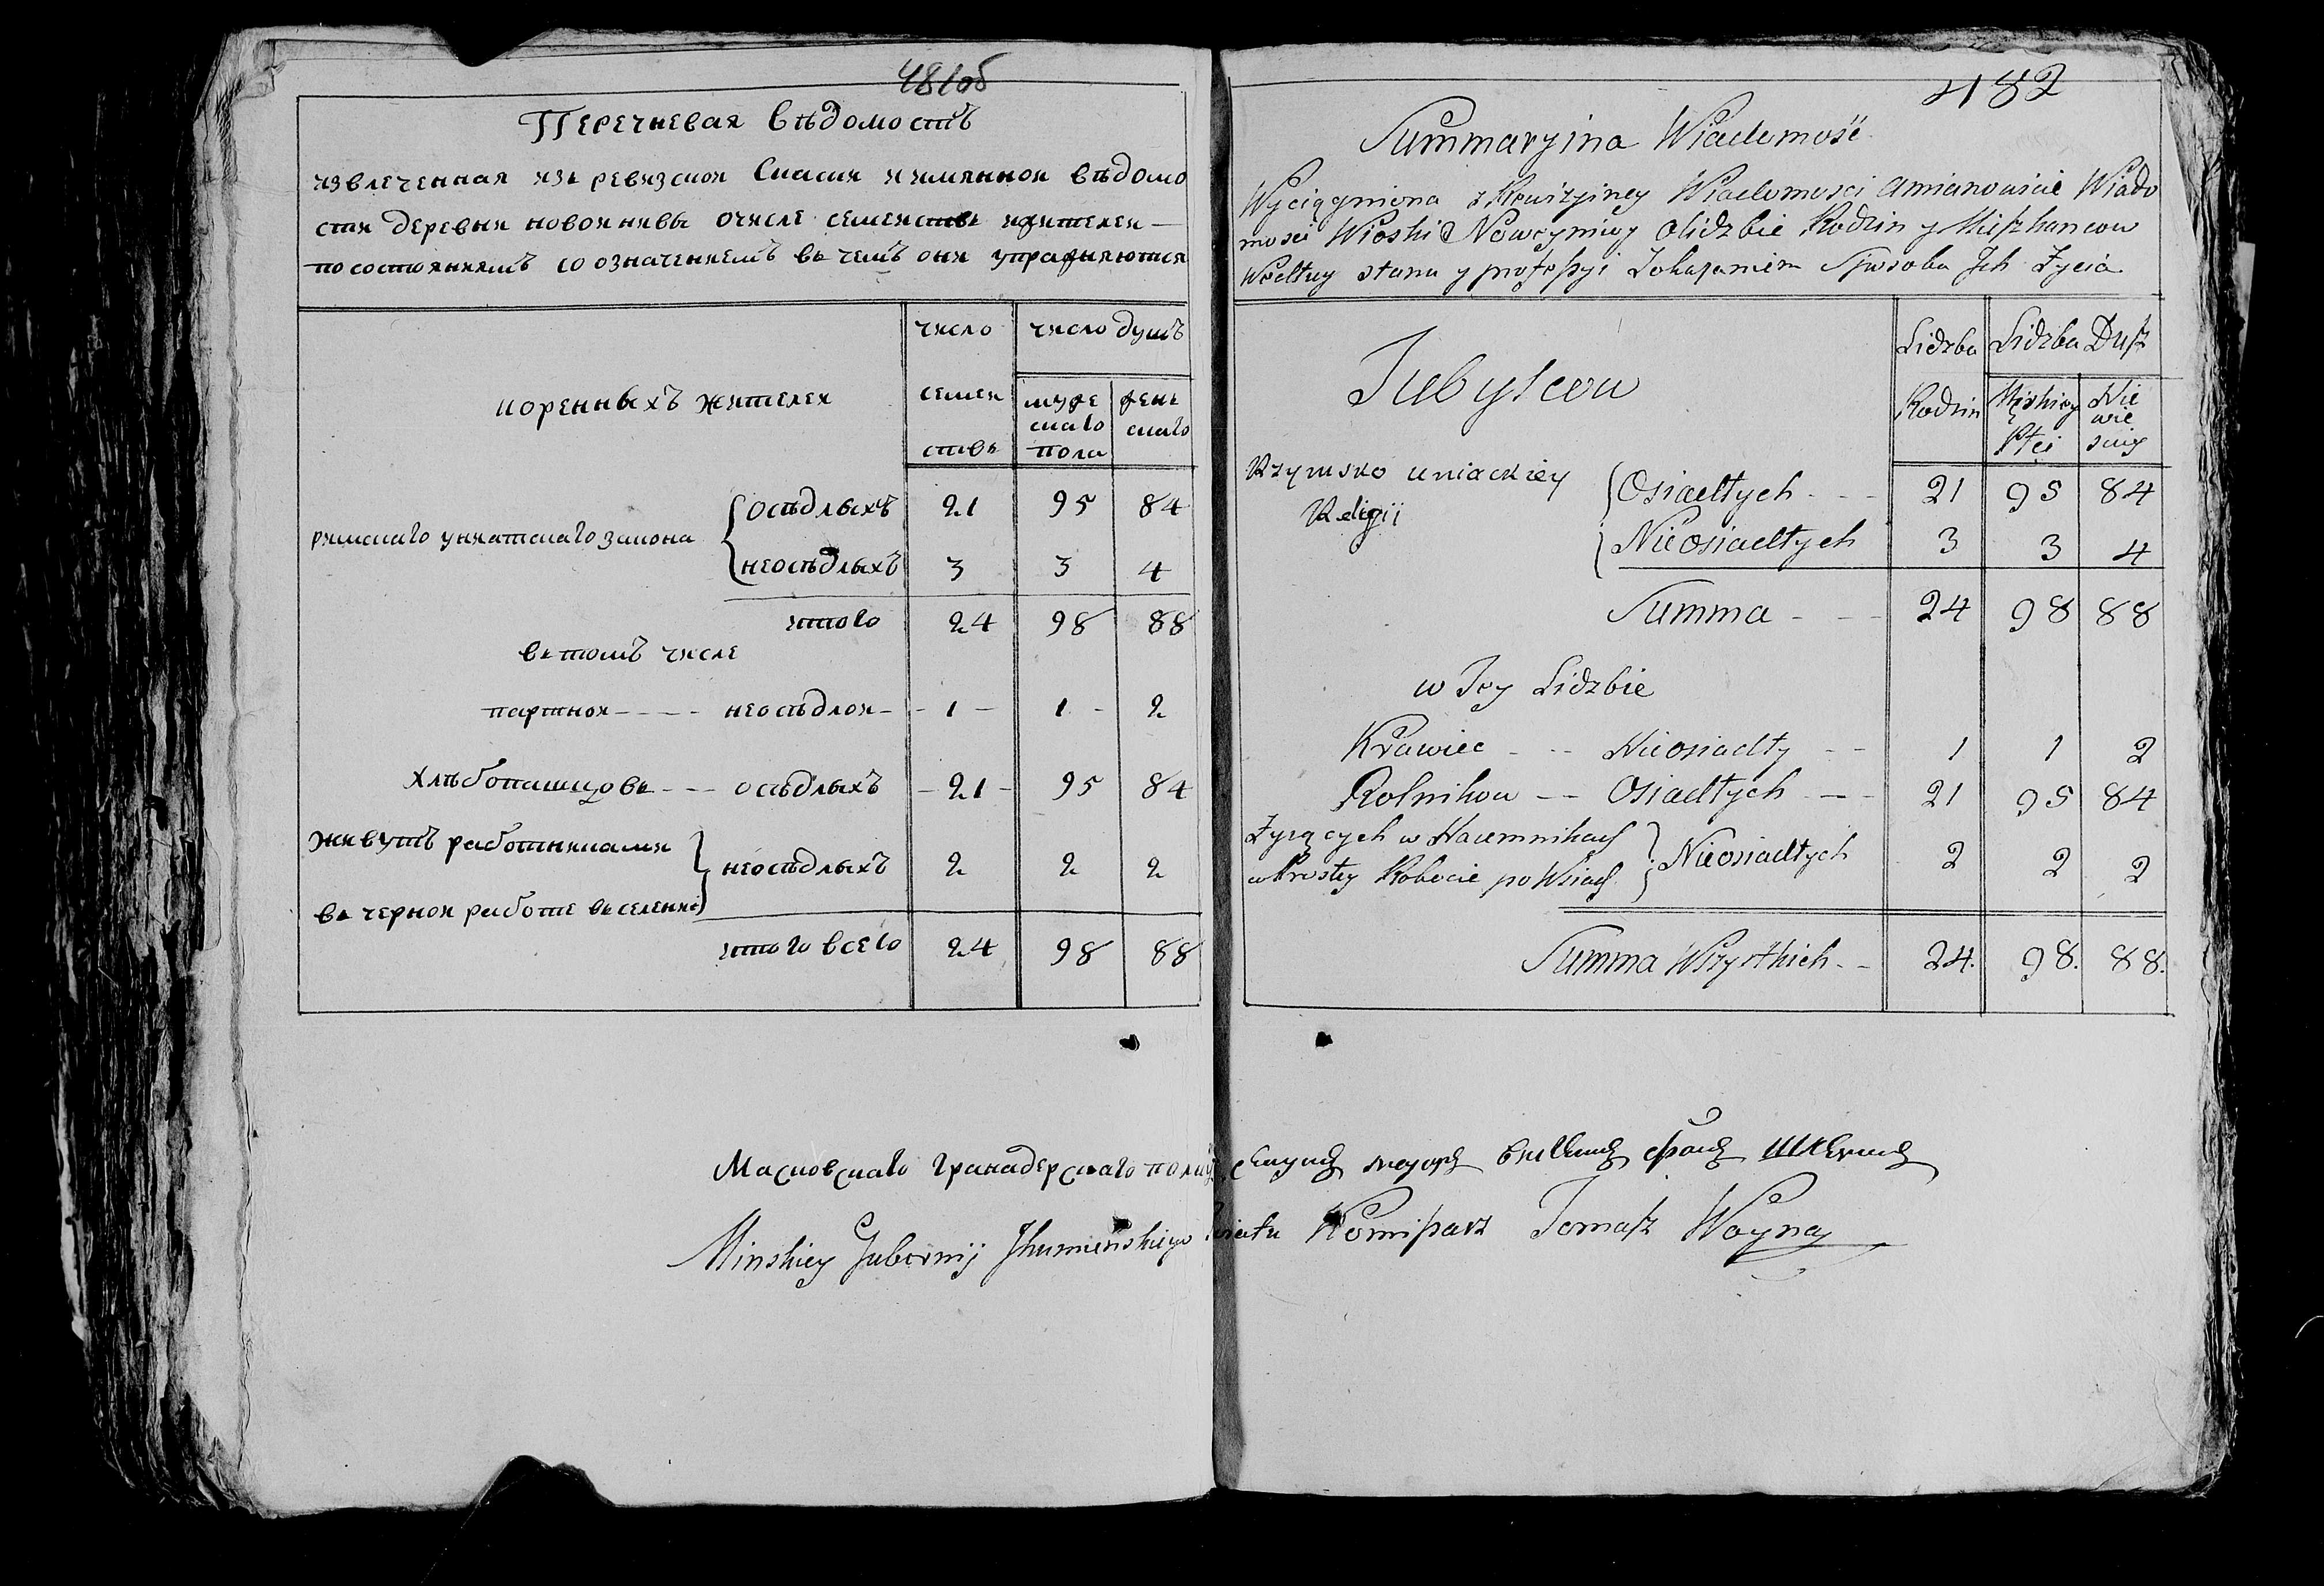 481об
Перечневая вѣдомостъ
извлеченная изъ ревизской Скаски иимянной вѣдомо
сти деревни новойнивы очисле семействъ ижителей —
посостояниямъ со означениемъ въ чемъ они упражняются
число число душъ
коренныхъ жителей
семей муже жень
скаго скаго
ствъ пола
римскаго униатскаго закона { осѣдлыхъ 21 95 84
неосѣдлыхъ 3 3 4
итого 24 98 88
въ томъ числе
партной - - - - неосѣдлой - - 1 - 1 - 2
хлѣбопашцовъ - - - осѣдлыхъ - 21 - 95 84
живутъ работниками
въ черной работе въ селении } неосѣдлыхъ 2 2 2
итого всего 24 98 88
482
Summaryina Wiadomość
Wyciągniona z Rewizyiney Wiadomosci amianowicie Wiado
mosci Wioski Noweyniwy Olidzbie Rodzin y Mieszkancow
Wedłuy stanu y professyi Zokazaniem Sposobu Jch Zycia
Lidzba Lidzba Dusz
Tubylcow
Rodzin Męskiey Nie
wie
Płci sciey
Rzymsko uniackiey { Osiadłych - - - 21 95 84
Religii
Nieosiadłych 3 3 4
Summa - - - 24 98 88
w Tey Lidzbie
Krawiec - - - Nieosiadły - - 1 1 2
Rolnikow - - Osiadłych - - - 21 95 84
Zyiących w Naiemnikach
w Prostey Robocie po Wsiach } Nieosiadłych 2 2 2
Summa Wszystkich - - 24. 98. 88.
Масковскаго гранадерскаго полку секунд маеор
Minskiey Gubernij Jhumenskiego Powiatu Komissarz Tomasz Woyna